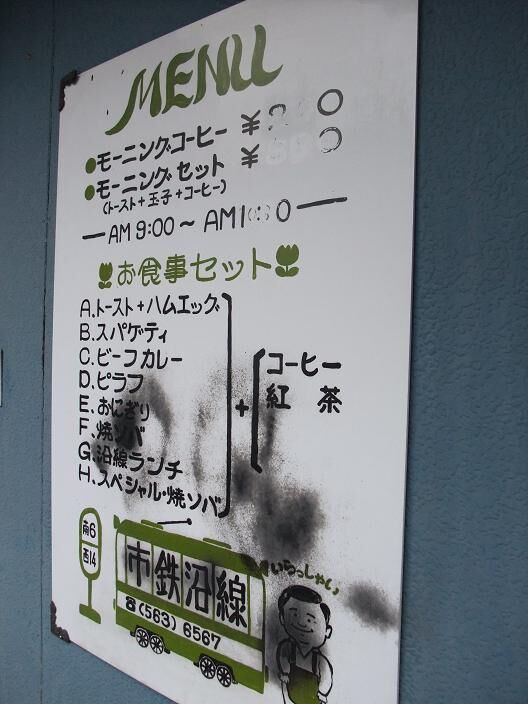 MENU
●モーニングコーヒー ¥
●モーニングセット ¥
(トースト+玉子+コーヒー)
AM 9:00～AM10:30
お食事セット
A.トースト+ハムエッグ
B.スパゲティ
C.ビーフカレー
D.ピラフ
E.おにぎり
F.焼ソバ
G.沿線ランチ
H.スペシャル・焼ソバ
+
コーヒー
紅茶
南6
西14
市鉄沿線
☎(563)6567
いらっしゃい